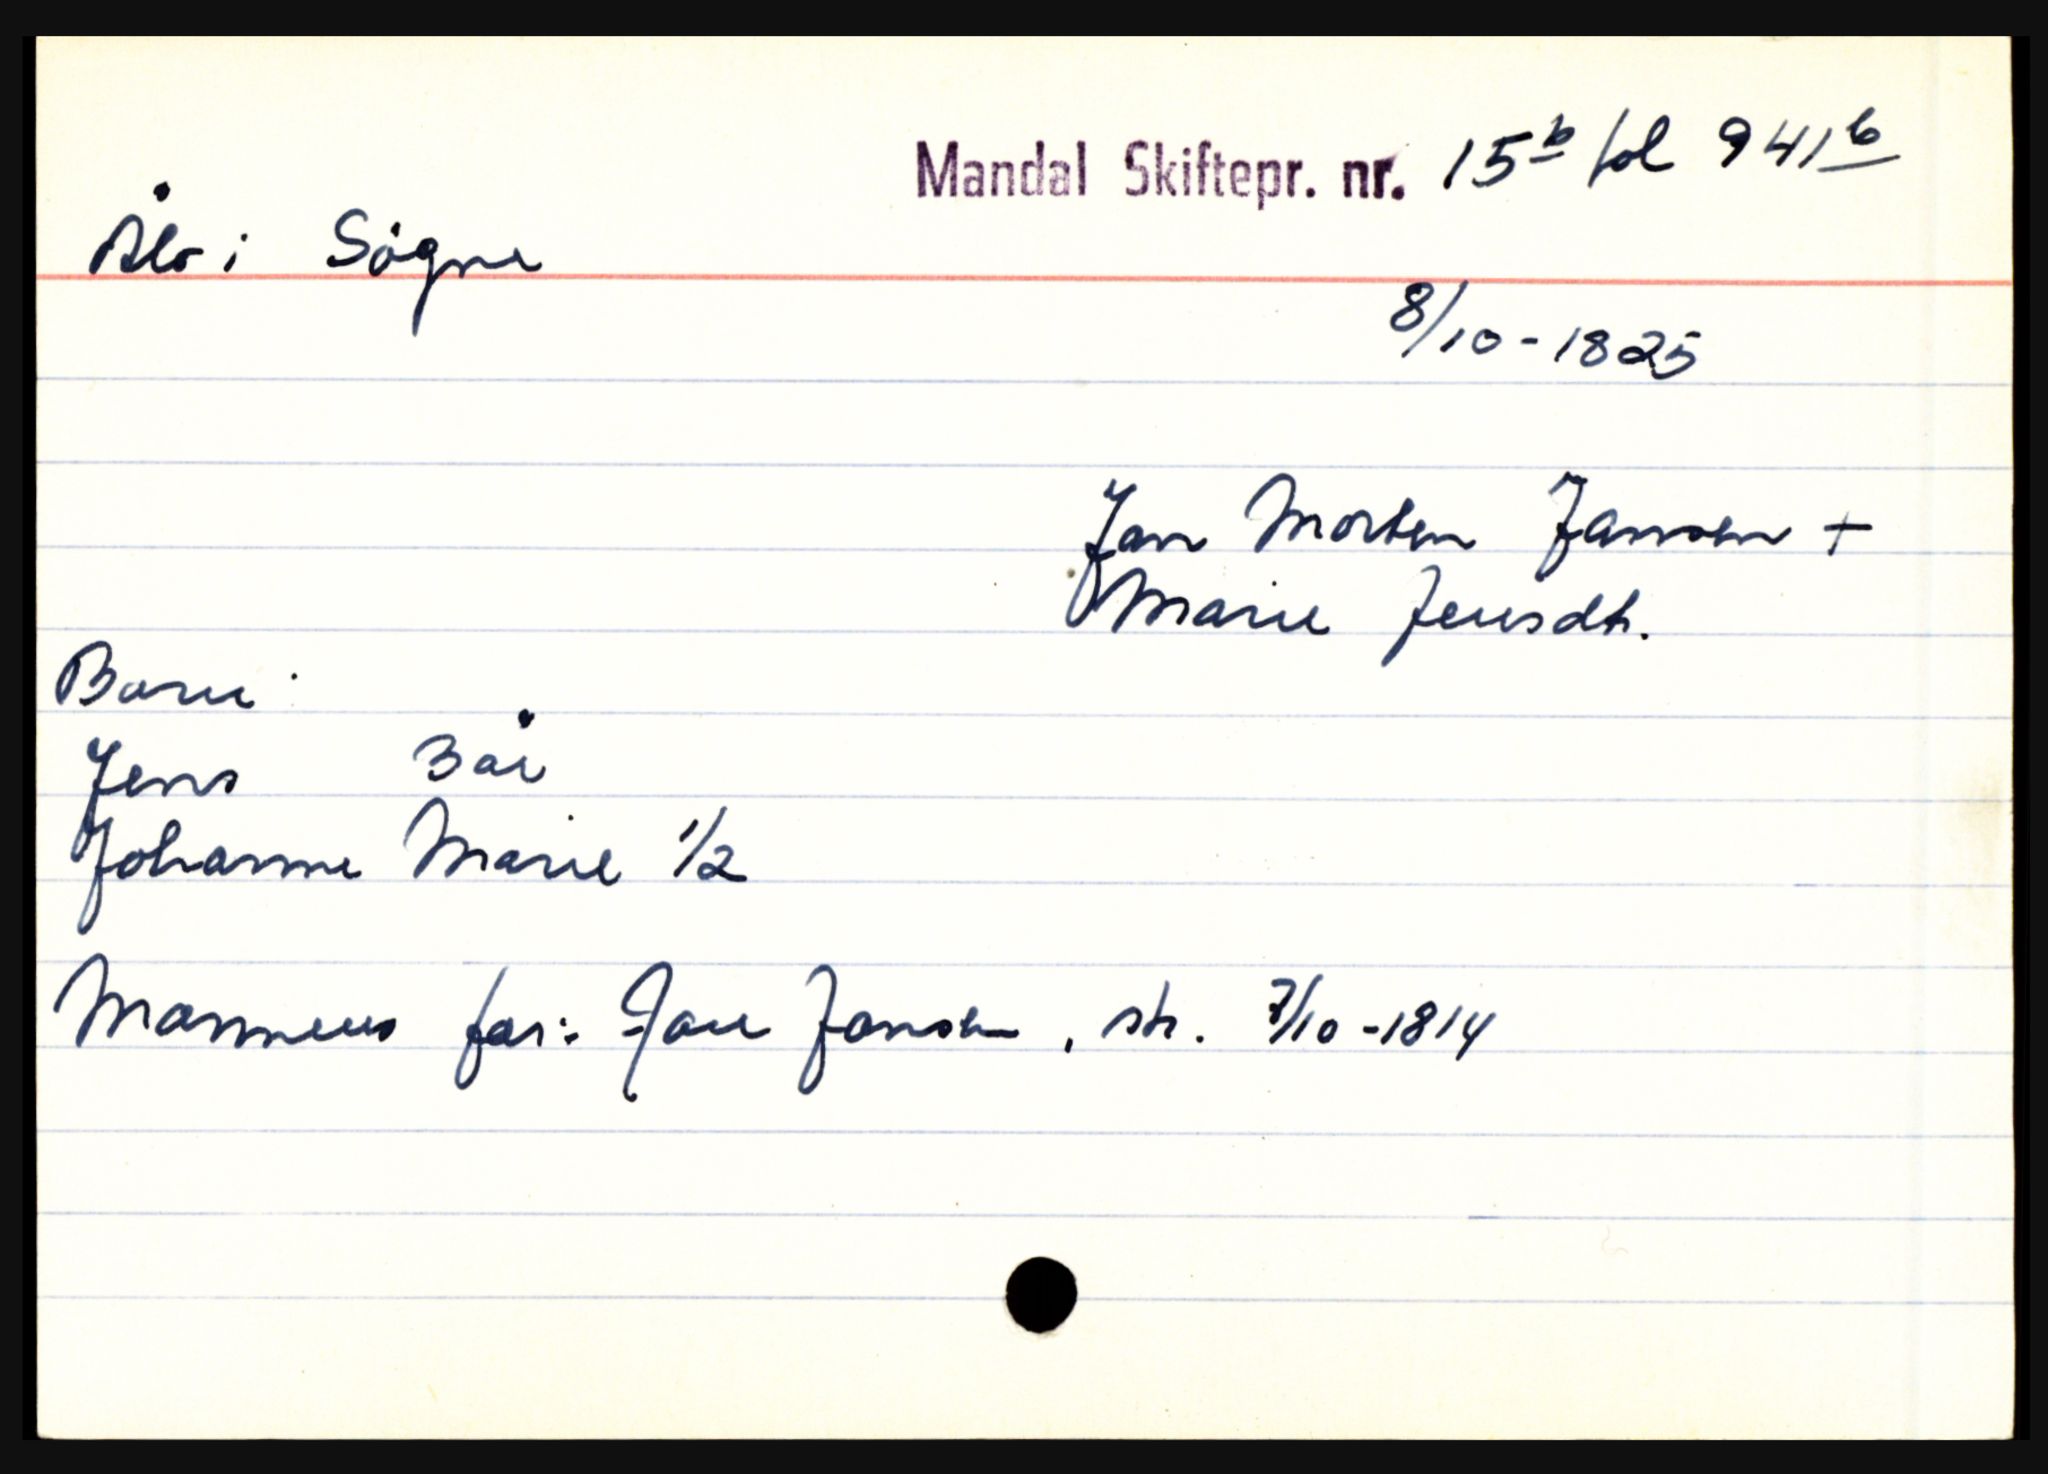 Mandal Skiftepr. nr. 15b fol 941b
Ålo i Sögne
8/10-1825
Jan Morten Jansen +
Marie Jensdtr.
Barn:
Jens 3 år
Johanne Marie 1/2
Mannens far: Jan Jansen, sk. 7/10-1814